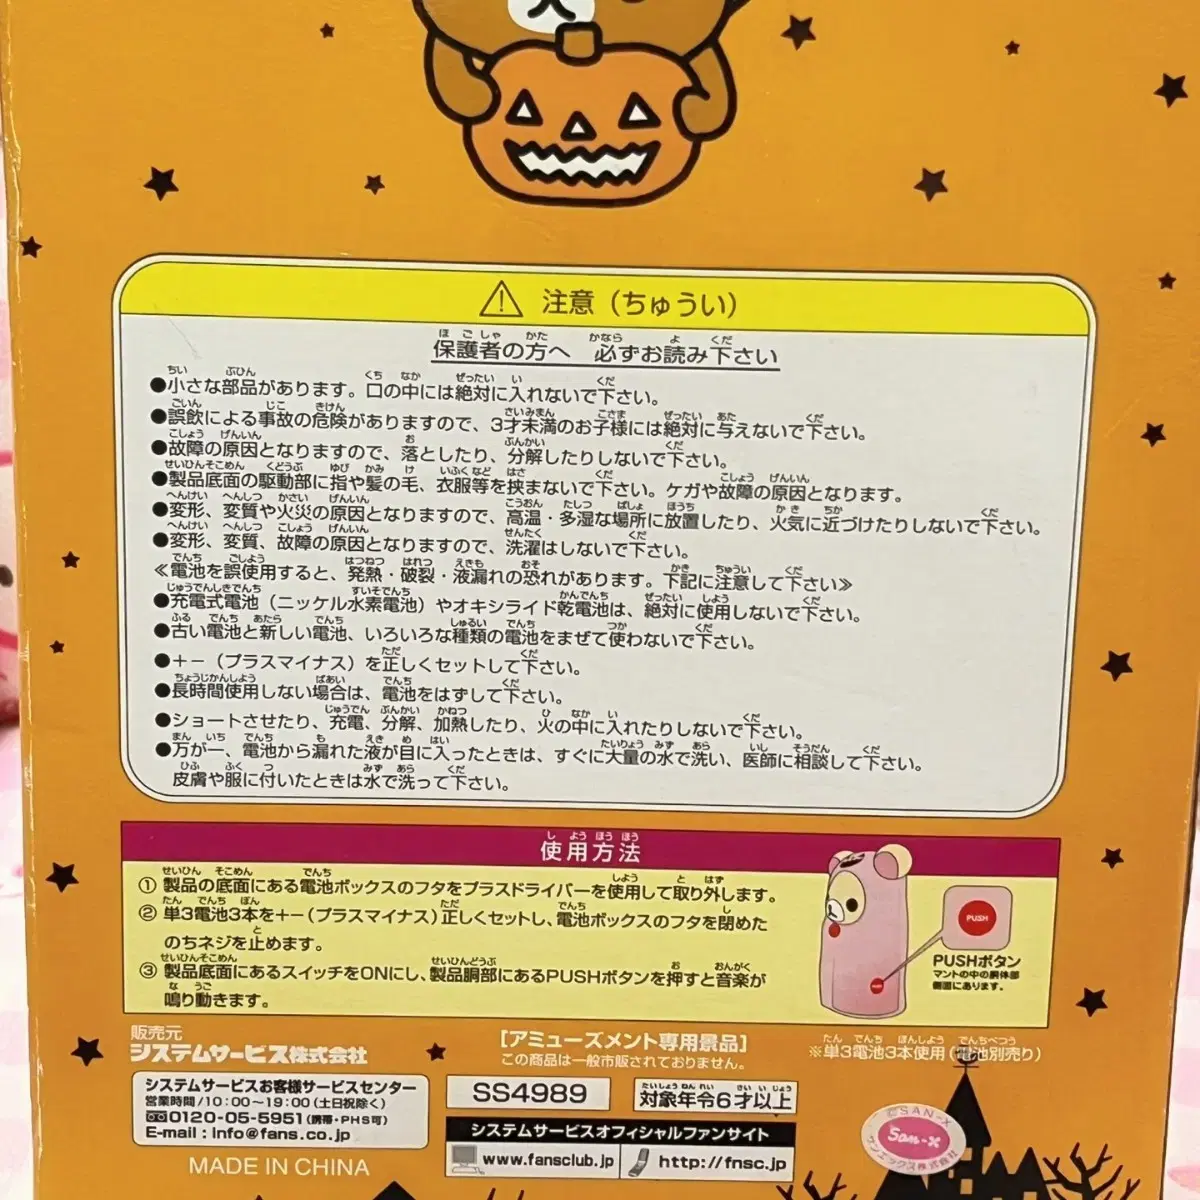 注意（ちゅうい）
保護者の方へ　必ずお読み下さい
●小さな部品があります。口の中には絶対に入れないで下さい。
●誤飲による事故の危険がありますので、3才未満のお子様には絶対に与えないで下さい。
●故障の原因となりますので、落としたり、分解したりしないで下さい。
●製品底面の駆動部に指や髪の毛、衣服等を挟まないで下さい。ケガや故障の原因となります。
●変形、変質や火災の原因となりますので、高温・多湿な場所に放置したり、火気に近づけたりしないで下さい。
●変形、変質、故障の原因となりますので、洗濯はしないで下さい。
≪電池を誤使用すると、発熱・破裂・液漏れの恐れがあります。下記に注意して下さい≫
●充電式電池（ニッケル水素電池）やオキシライド乾電池は、絶対に使用しないで下さい。
●古い電池と新しい電池、いろいろな種類の電池をまぜて使わないで下さい。
●＋－（プラスマイナス）を正しくセットして下さい。
●長時間使用しない場合は、電池をはずして下さい。
●ショートさせたり、充電、分解、加熱したり、火の中に入れたりしないで下さい。
●万が一、電池から漏れた液が目に入ったときは、すぐに大量の水で洗い、医師に相談して下さい。
皮膚や服に付いたときは水で洗って下さい。
使用方法
① 製品の底面にある電池ボックスのフタをプラスドライバーを使用して取り外します。
② 単3電池3本を＋－（プラスマイナス）正しくセットし、電池ボックスのフタを閉めた
のちネジを止めます。
③ 製品底面にあるスイッチをONにし、製品胴部にあるPUSHボタンを押すと音楽が
鳴り動きます。
PUSH
PUSHボタン
マントの中の胴体部
側面にあります。
販売元
システムサービス株式会社
[アミューズメント専用景品]
この商品は一般市販されておりません。
※単3電池3本使用（電池別売り）
システムサービスお客様サービスセンター
営業時間/10：00～19：00（土日祝除く）
0120-05-5951（携帯・PHS可）
E-mail : info@fans.co.jp
MADE IN CHINA
SS4989
対象年令6才以上
システムサービスオフィシャルファンサイト
www.fansclub.jp
http://fnsc.jp/
©SAN-X
San-x
サンエックス株式会社